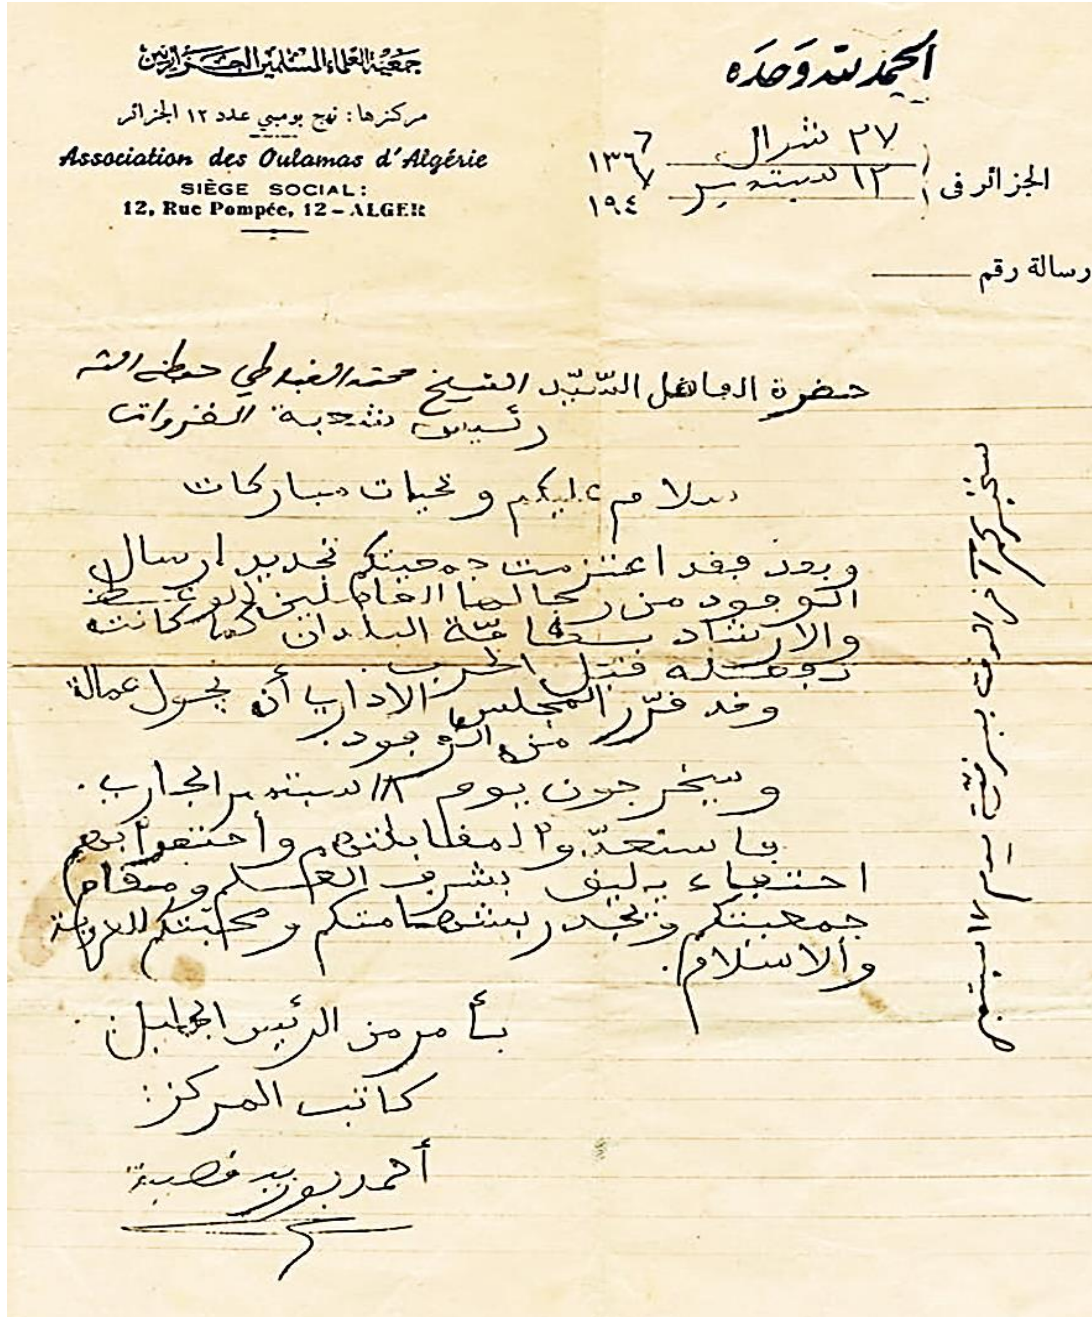 الحمد لله وحده
جمعية العلماء المسلمين الجزائريين
مركزها: نهج بومبي عدد ١٢ الجزائر
Association des Oulamas d'Algérie
SIÈGE SOCIAL:
12, Rue Pompée, 12 - ALGER
الجزائر فى
٢٧ شوال ١٣٦٦
١٢ سبتمبر ١٩٤٧
رسالة رقم
حضرة الفاضل السيد الشيخ محمد حفظه الله
رئيس شعبة الغزوات
سلام عليكم وتحيات مباركات
وبعد فقد اعتزمت جمعيتكم تجديد ارسال
الوفود من رجالها العاملين للوعظ
والارشاد بعامّة البلدان كما كانت
تفعله قبل الحرب.
وقد قرّر المجلس الاداري أن يجول عمالة
من الوفود.
وسيخرجون يوم ١٨ سبتمبر الجاري.
فاستعدّوا لمقابلتهم وأحتفوا بهم
احتفاء يليق بشرف العلم ومقام
جمعيتكم ويجدر بشهامتكم ومحبتكم للعروبة
والاسلام.
بأمر من الرئيس الجليل:
كاتب المركز:
أحمد بوزيد قصيبة
سنخبركم الوفد